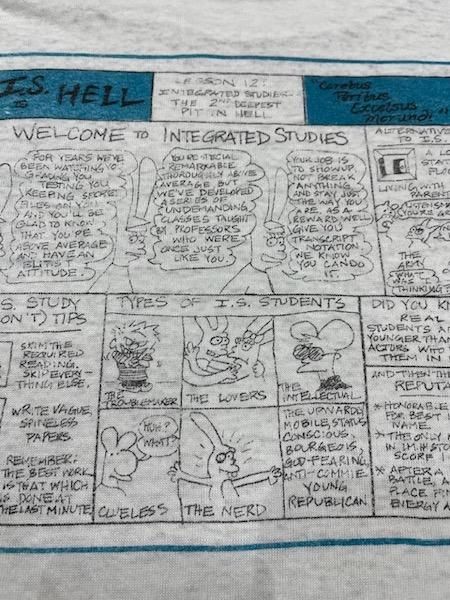 I.S.
IS HELL
LESSON 12:
INTEGRATED STUDIES—
THE 2ND DEEPEST
PIT IN HELL
Cerebus
Excelsus
WELCOME TO INTEGRATED STUDIES
FOR YEARS WE'VE
BEEN WATCHING YOU
GRADING YOU
TESTING YOU
KEEPING SECRET
FILES ON YOU
AND YOU'LL BE
GLAD TO KNOW
THAT YOU'RE
ABOVE AVERAGE
AND HAVE AN
ELITIST
ATTITUDE.
YOU'RE SPECIAL
REMARKABLE
THOROUGHLY ABOVE
AVERAGE BUT
WE'VE DEVELOPED
A SERIES OF
UNDEMANDING
CLASSES TAUGHT
BY PROFESSORS
WHO WERE
ONCE JUST
LIKE YOU.
YOUR JOB IS
TO SHOW UP,
NOT BREAK
ANYTHING
AND STAY JUST
THE WAY YOU
ARE. AS A
REWARD WE'LL
GIVE YOU
TRANSCRIPT
NOTATION.
WE KNOW
YOU CAN DO
IT.
ALTERNATIVES
TO I.S.
LIVING WITH
PARENT
THE
ARMY
WHAT
WAS I
THINKING?
S. STUDY
(ON'T) TIPS
SKIM THE
REQUIRED
READING.
SKIP EVERY-
THING ELSE.
WRITE VAGUE,
SPINELESS
PAPERS.
REMEMBER:
THE BEST WORK
IS THAT WHICH
IS DONE AT
THE LAST MINUTE
TYPES OF I.S. STUDENTS
THE
TROUBLEMAKER
THE LOVERS
THE
INTELLECTUAL
HUH?
WHAT?
CLUELESS
THE NERD
THE UPWARDLY
MOBILE, STATUS
CONSCIOUS,
BOURGEOIS,
GOD-FEARING,
ANTI-COMMIE,
YOUNG
REPUBLICAN
DID YOU K
REAL
STUDENTS A
YOUNGER THAN
ACTORS WHO
THEM IN
AND THEN TH
REPUTA
* HONORABLE
FOR BEST
NAME.
* THE ONLY
IN I.M. HISTO
SCORE
* AFTER A
BATTLE, A
PLACE FIN
ENERGY A